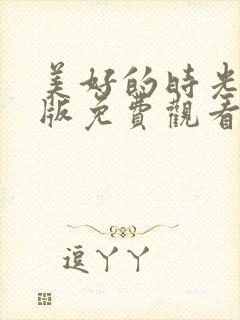 美好的時光
版免費觀看
逗丫丫